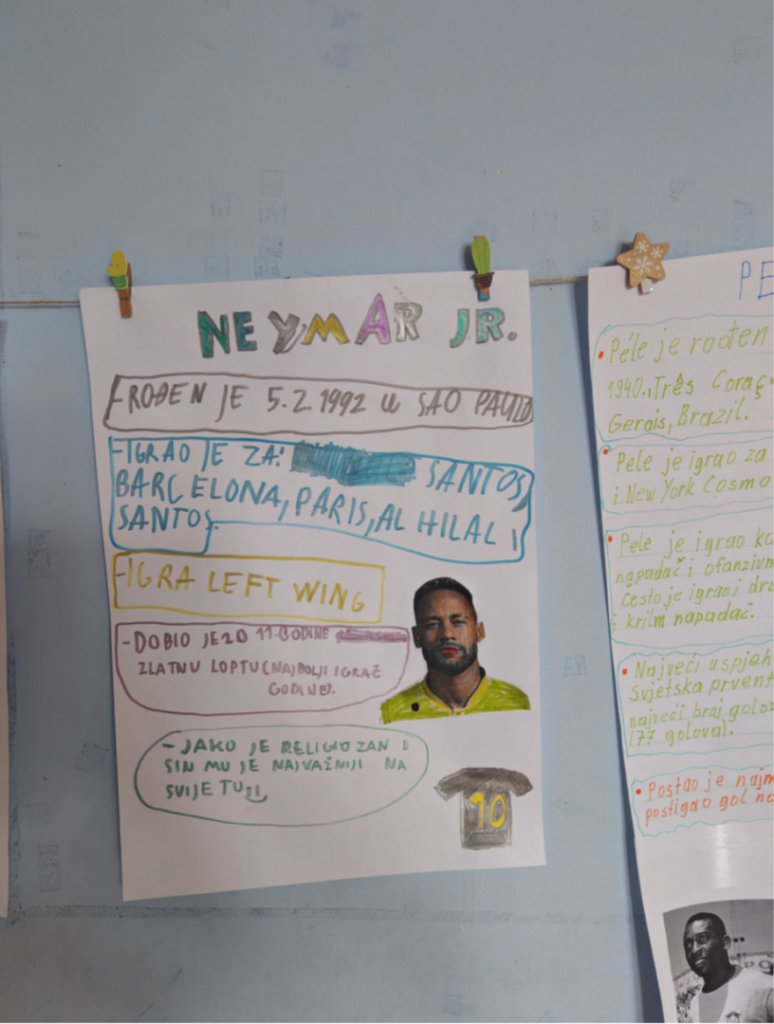 NEYMAR JR.
-ROĐEN JE 5.2.1992 U SAO PAULO
-IGRAO JE ZA: SANTOS,
BARCELONA, PARIS, AL HILAL I
SANTOS.
-IGRA LEFT WING
-DOBIO JE 20 11. GODINE
ZLATNU LOPTU (NAJBOLJI IGRAČ
GODINE).
-JAKO JE RELIGIOZAN I
SIN MU JE NAJVAŽNIJI NA
SVIJETU :)
10
PE
• Péle je rođen
1940., Três Coraç
Gerais, Brazil.
• Pele je igrao za
i New York Cosmo
• Pele je igrao ka
napadač i ofanzivn
Često je igrao i dru
i krilni napadač.
• Najveći uspjeh
Svjetska prvent
najveći broj golov
(77 golova).
• Postao je najm
postigao gol na